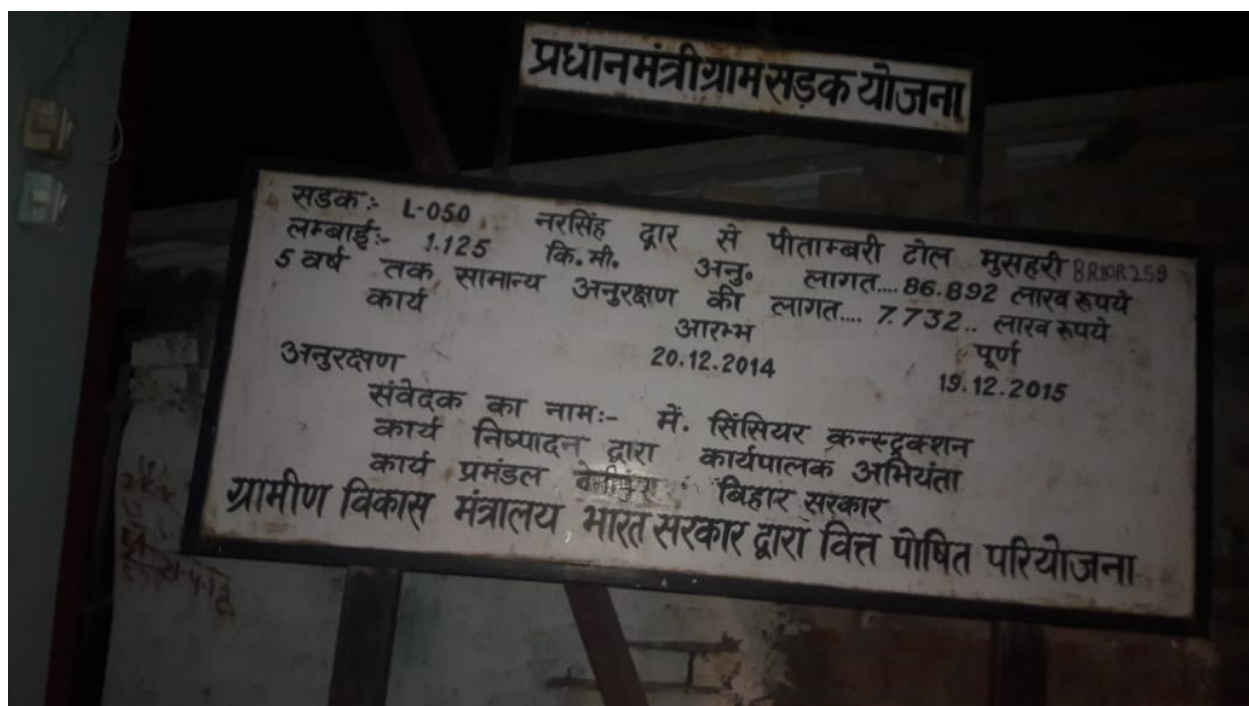 प्रधानमंत्री ग्राम सड़क योजना
सडक:- L-050 नरसिंह द्वार से पीताम्बरी टोल मुसहरी BR10R259
लम्बाई:- 1.125 कि.मी. अनु. लागत.... 86.892 लाख रूपये
5 वर्ष तक सामान्य अनुरक्षण की लागत.... 7.732.. लाख रूपये
कार्य आरम्भ पूर्ण
अनुरक्षण 20.12.2014 19.12.2015
संवेदक का नाम:- में. सिंसियर कन्स्ट्रक्शन
कार्य निष्पादन द्वारा कार्यपालक अभियंता
कार्य प्रमंडल बेनीपुर बिहार सरकार
ग्रामीण विकास मंत्रालय, भारत सरकार द्वारा वित्त पोषित परियोजना